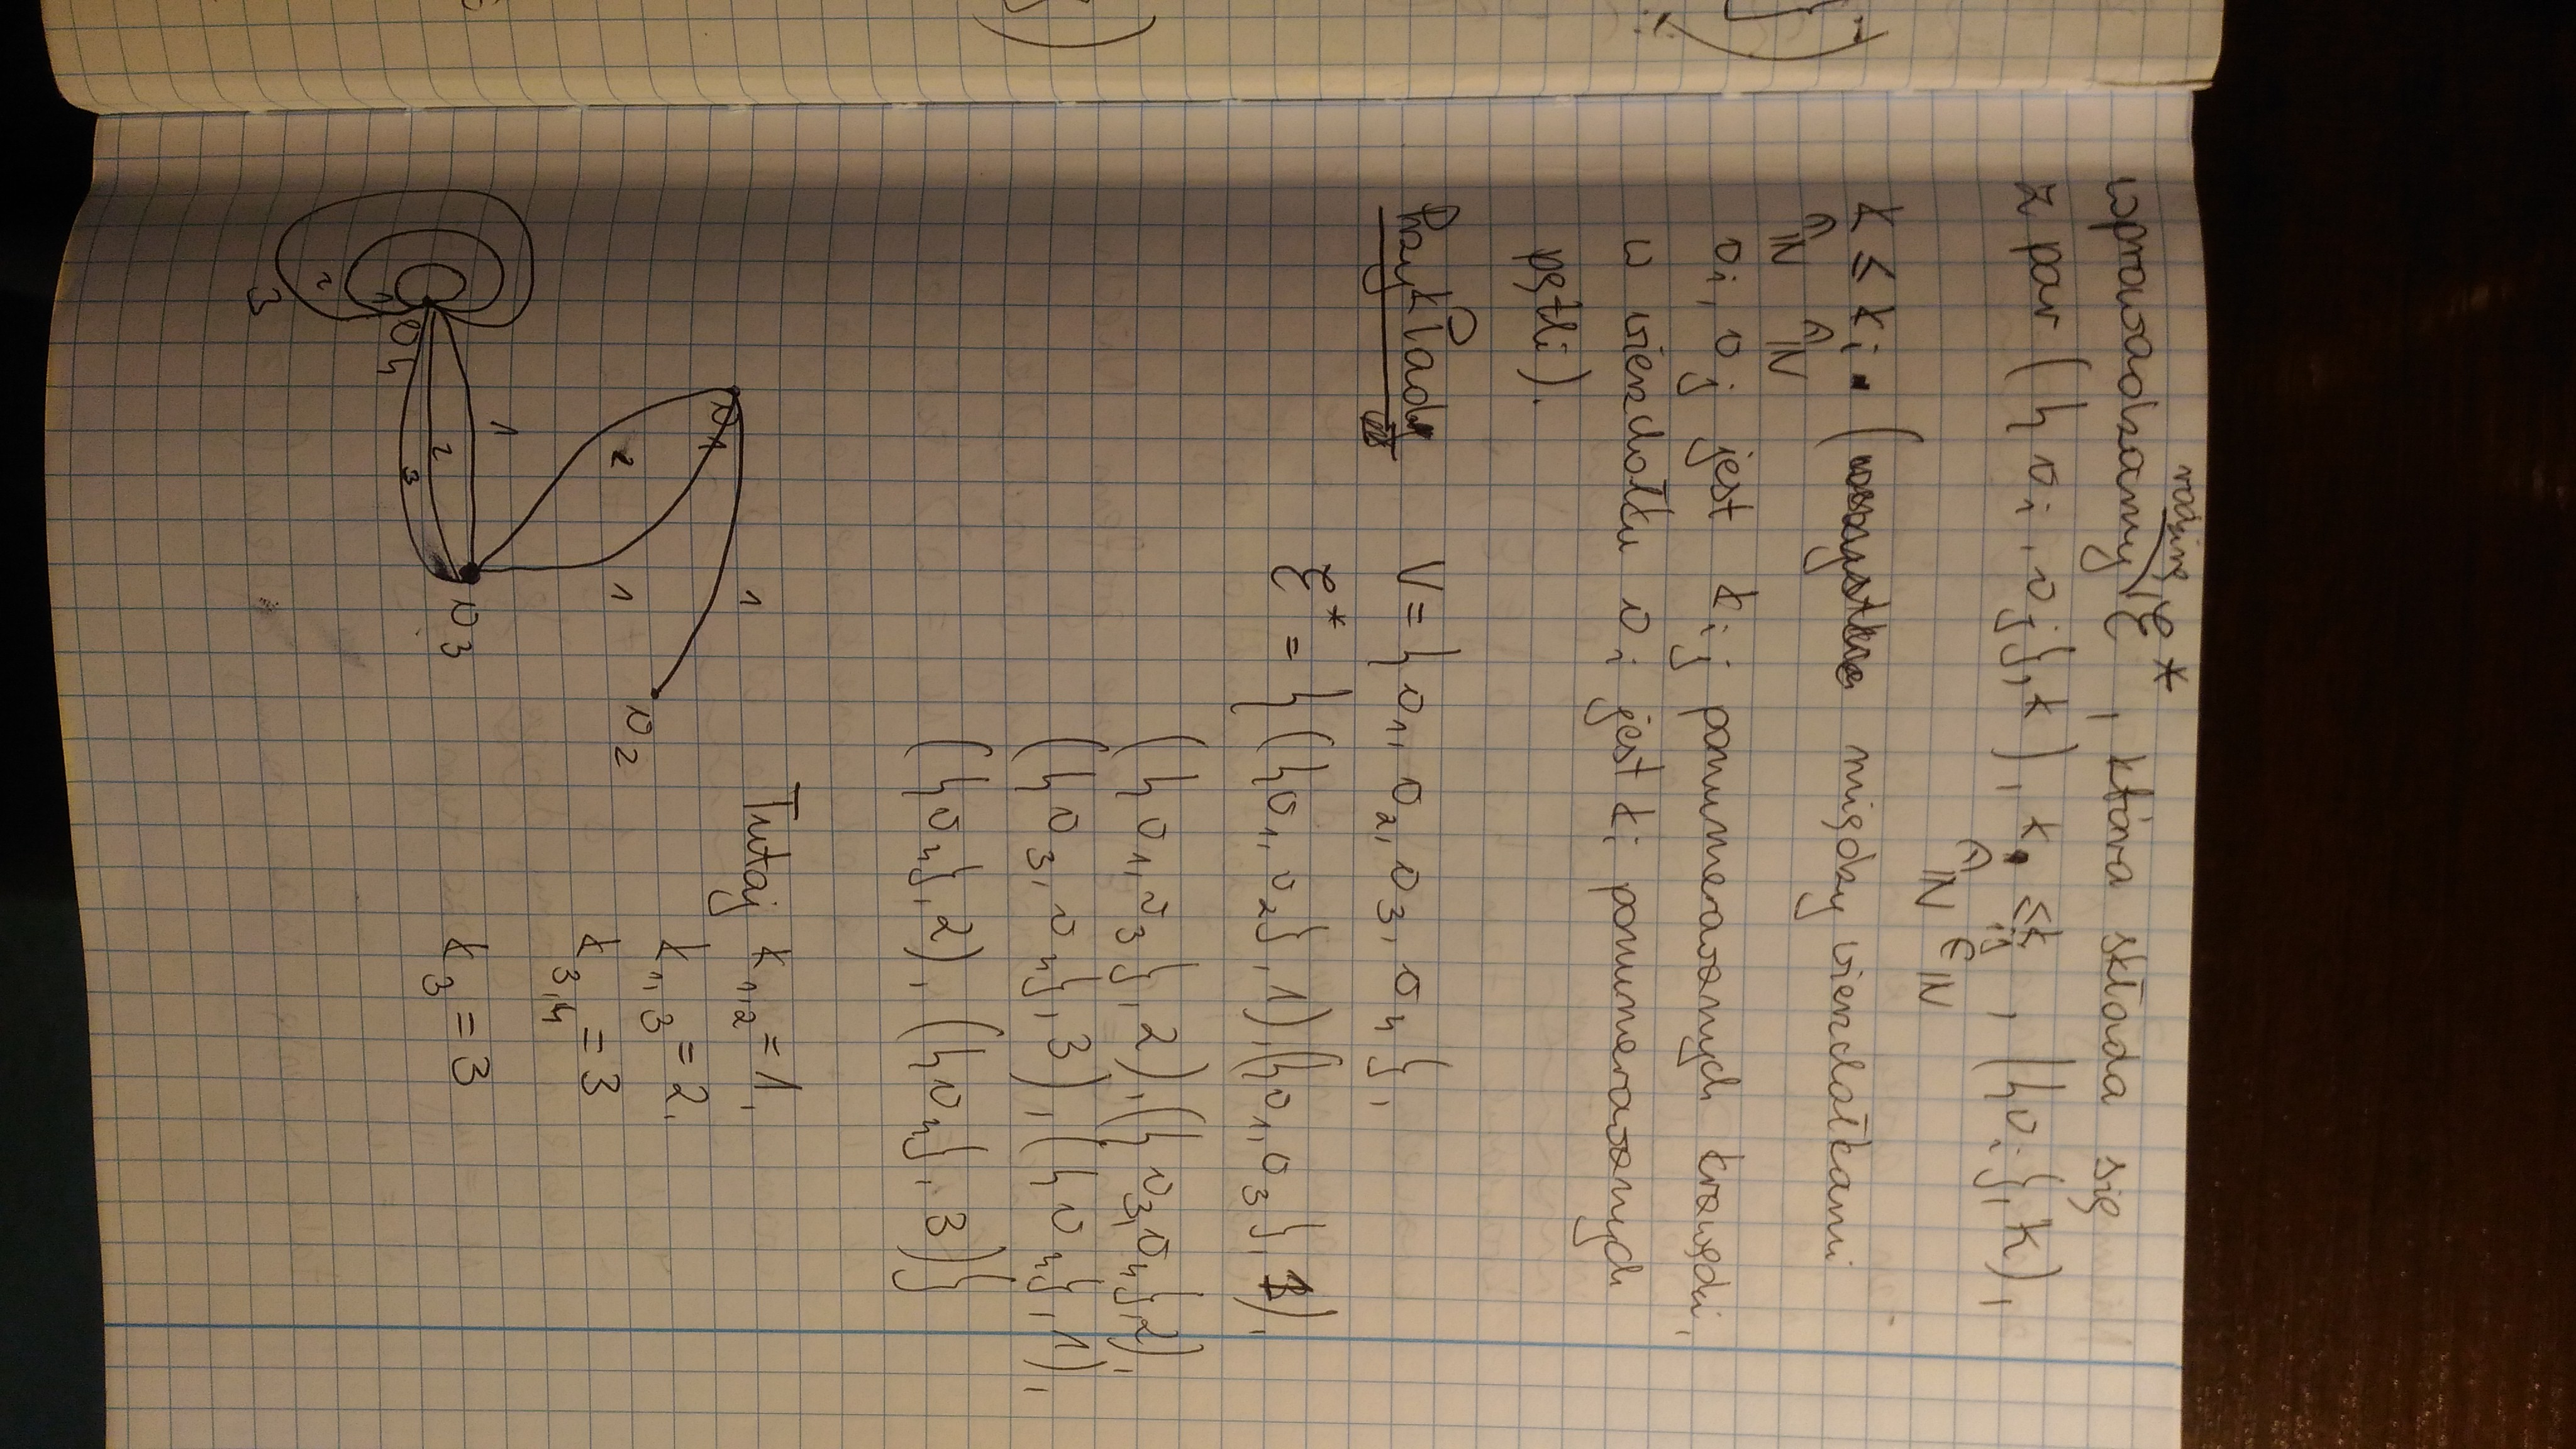 rodzinę
wprowadzamy ℰ*, która składa się
z par ({v_i, v_j}, k), k ≤ k_ij, ({v_i}, k),
∈ ℕ ∈ ℕ
k ≤ k_i. (między wierzchołkami
∈ ℕ ∈ ℕ
v_i, v_j jest k_ij ponumerowanych krawędzi,
w wierzchołku v_i jest k_i ponumerowanych
pętli).
Przykład V = {v_1, v_2, v_3, v_4},
ℰ* = {({v_1, v_2}, 1), ({v_1, v_3}, 1),
({v_1, v_3}, 2), ({v_3, v_4}, 2),
({v_3, v_4}, 3), ({v_4}, 1),
({v_4}, 2), ({v_4}, 3)}
Tutaj k_1,2 = 1,
k_1,3 = 2,
k_3,4 = 3
k_3 = 3
1
v_1
v_2
2 1
1
v_3
2
3
v_4
1
2
3